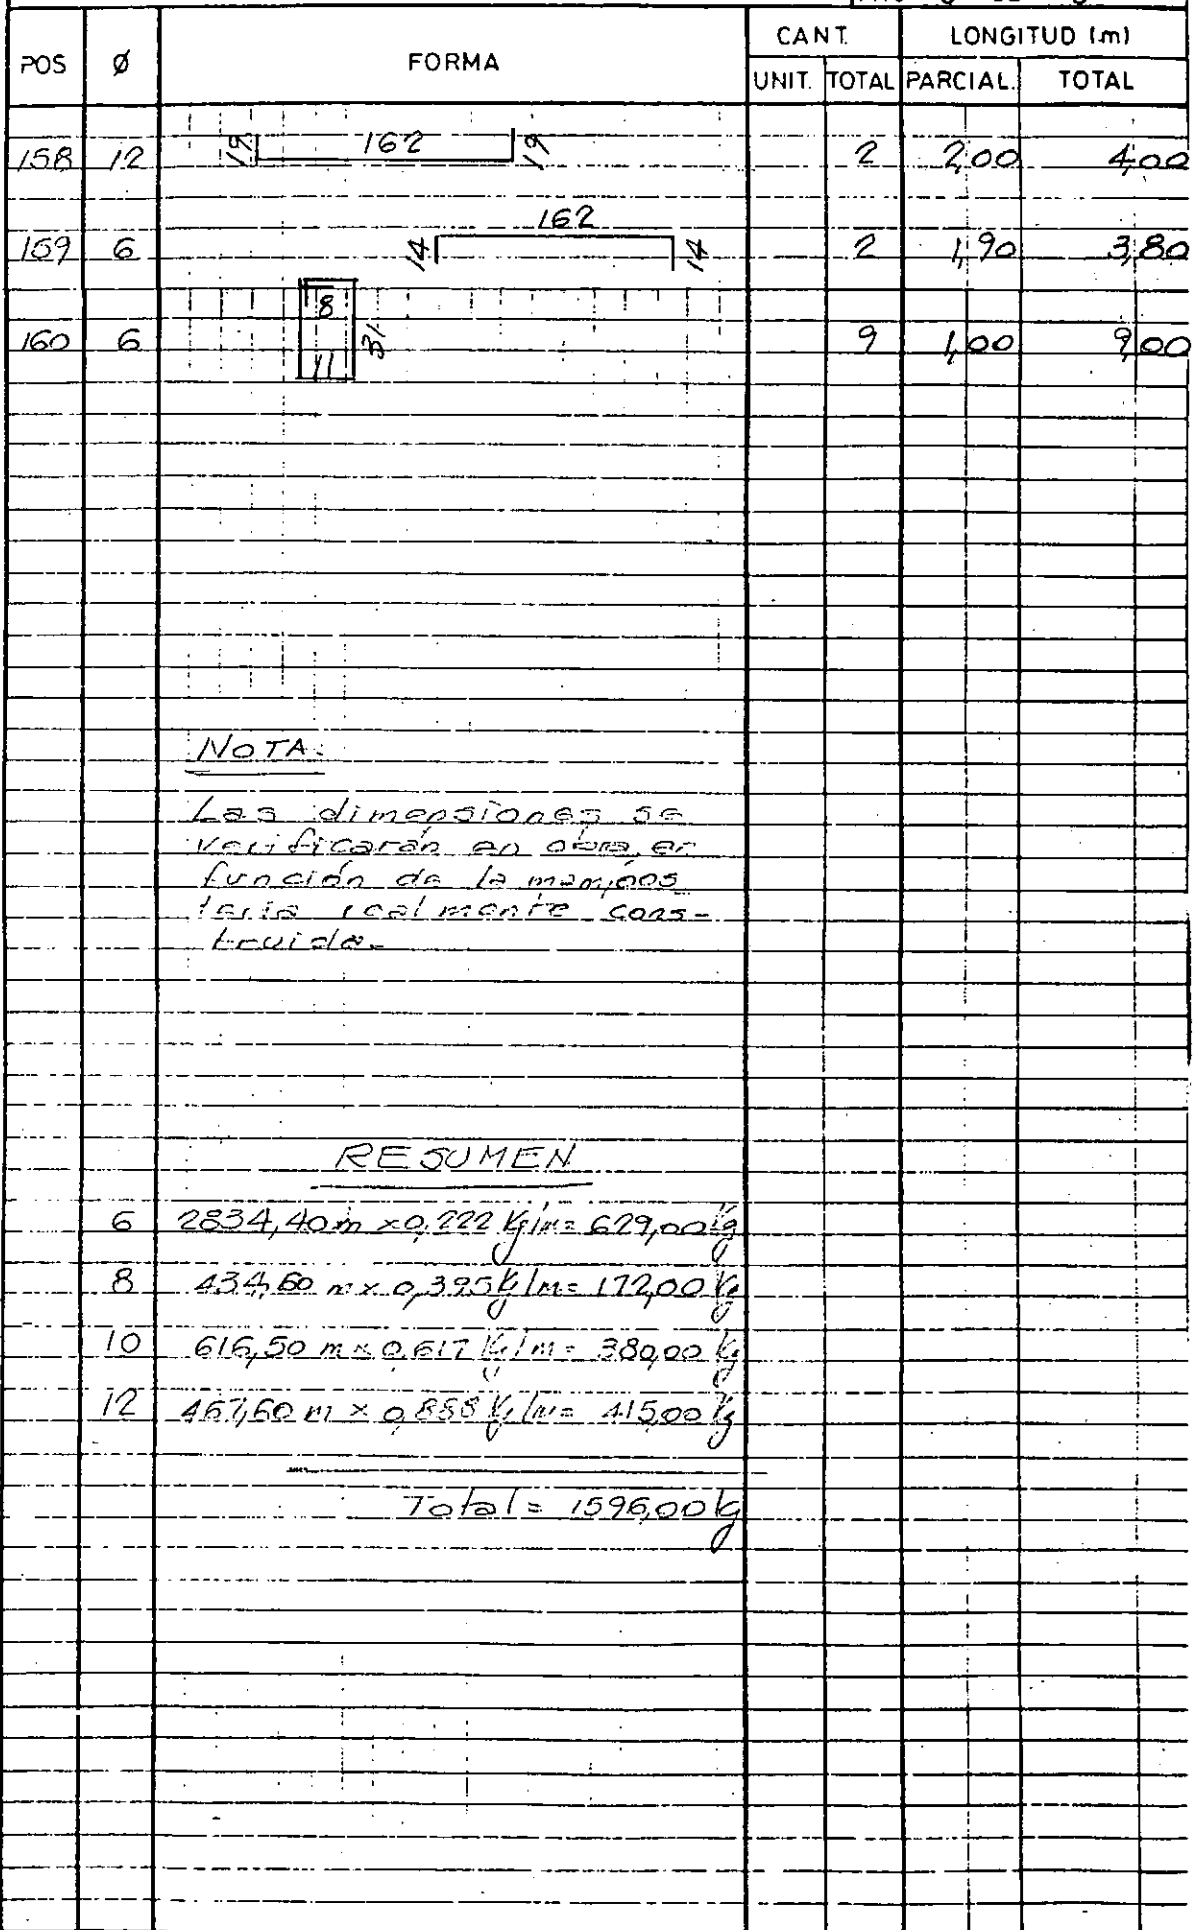 POS Ø FORMA CANT. LONGITUD (m)
UNIT. TOTAL PARCIAL. TOTAL
158 12 19 162 19 2 2,00 4,00
159 6 14 162 14 2 1,90 3,80
160 6 8 11 31 9 1,00 9,00
NOTA:
Las dimensiones se
verificarán en obra, en
función de la mampos
tería realmente cons-
truida.
RESUMEN
6 2834,40 m x 0,222 Kg/m = 629,00 Kg
8 434,60 m x 0,395 Kg/m = 172,00 Kg
10 616,50 m x 0,617 Kg/m = 380,00 Kg
12 467,60 m x 0,888 Kg/m = 415,00 Kg
Total = 1596,00 Kg